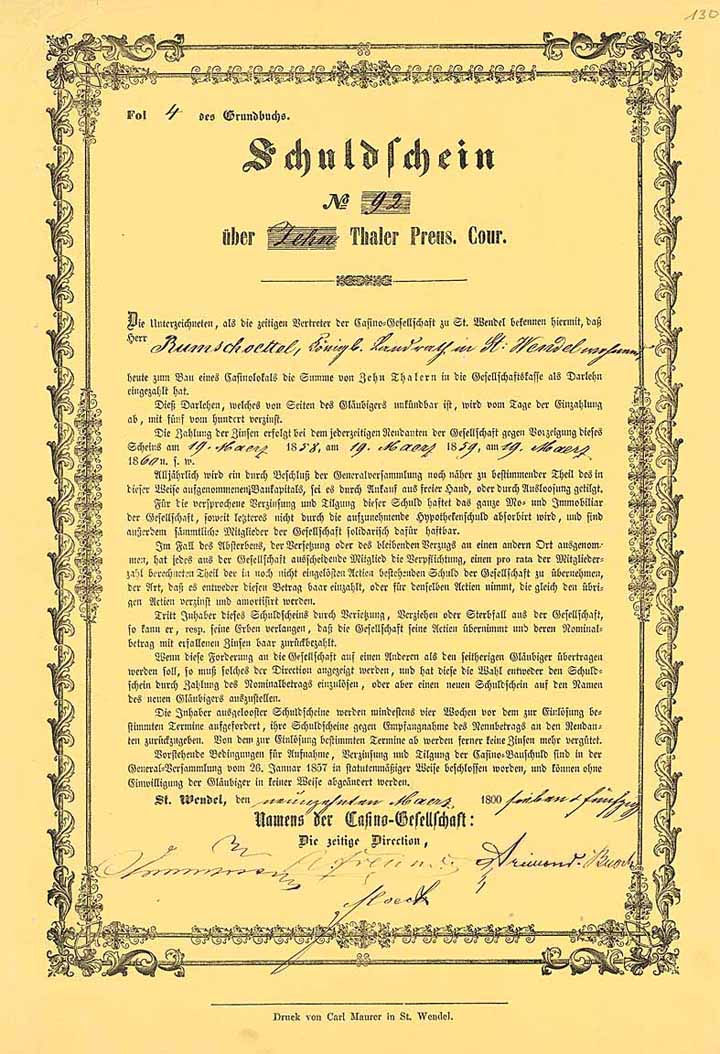 130
Fol 4 des Grundbuchs.
Schuldschein
No 92
über Zehn Thaler Preus. Cour.
Die Unterzeichneten, als die zeitigen Vertreter der Casino-Gesellschaft zu St. Wendel bekennen hiermit, daß
Herr Rumschoettel, Königl. Landrath in St. Wendel
heute zum Bau eines Casinolokals die Summe von Zehn Thalern in die Gesellschaftskasse als Darlehn
eingezahlt hat.
Dieß Darlehen, welches von Seiten des Gläubigers unkündbar ist, wird vom Tage der Einzahlung
ab, mit fünf vom hundert verzinst.
Die Zahlung der Zinsen erfolgt bei dem jederzeitigen Rendanten der Gesellschaft gegen Vorzeigung dieses
Scheins am 19. Maerz 1858, am 19. Maerz 1859, am 19. Maerz
1860 u. s. w.
Alljährlich wird ein durch Beschluß der Generalversammlung noch näher zu bestimmender Theil des in
dieser Weise aufgenommenen Baukapitals, sei es durch Ankauf aus freier Hand, oder durch Ausloosung getilgt.
Für die versprochene Verzinsung und Tilgung dieser Schuld haftet das ganze Mo- und Immobiliar
der Gesellschaft, soweit letzteres nicht durch die aufzunehmende Hypothekenschuld absorbirt wird, und sind
außerdem sämmtliche Mitglieder der Gesellschaft solidarisch dafür haftbar.
Im Fall des Absterbens, der Versetzung oder des bleibenden Verzugs an einen andern Ort ausgenom-
men, hat jedes aus der Gesellschaft ausscheidende Mitglied die Verpflichtung, einen pro rata der Mitglieder-
zahl berechneten Theil der in noch nicht eingelösten Actien bestehenden Schuld der Gesellschaft zu übernehmen,
der Art, daß es entweder diesen Betrag baar einzahlt, oder für denselben Actien nimmt, die gleich den übri-
gen Actien verzinst und amortisirt werden.
Tritt Inhaber dieses Schuldscheins durch Versetzung, Verziehen oder Sterbfall aus der Gesellschaft,
so kann er, resp. seine Erben verlangen, daß die Gesellschaft seine Actien übernimmt und deren Nominal-
betrag mit erfallenen Zinsen baar zurückbezahlt.
Wenn diese Forderung an die Gesellschaft auf einen Anderen als den seitherigen Gläubiger übertragen
werden soll, so muß solches der Direction angezeigt werden, und hat diese die Wahl entweder den Schuld-
schein durch Zahlung des Nominalbetrags einzulösen, oder aber einen neuen Schuldschein auf den Namen
des neuen Gläubigers auszustellen.
Die Inhaber ausgelooster Schuldscheine werden mindestens vier Wochen vor dem zur Einlösung be-
stimmten Termine aufgefordert, ihre Schuldscheine gegen Empfangnahme des Nennbetrags an den Rendan-
ten zurückzugeben. Von dem zur Einlösung bestimmten Termine ab werden ferner keine Zinsen mehr vergütet.
Vorstehende Bedingungen für Aufnahme, Verzinsung und Tilgung der Casino-Bauschuld sind in der
General-Versammlung vom 26. Januar 1857 in statutenmäßiger Weise beschlossen worden, und können ohne
Einwilligung der Gläubiger in keiner Weise abgeändert werden.
St. Wendel, den neunzehnten Maerz 1800 sieben & fünfzig
Namens der Casino-Gesellschaft:
Die zeitige Direction,
Druck von Carl Maurer in St. Wendel.